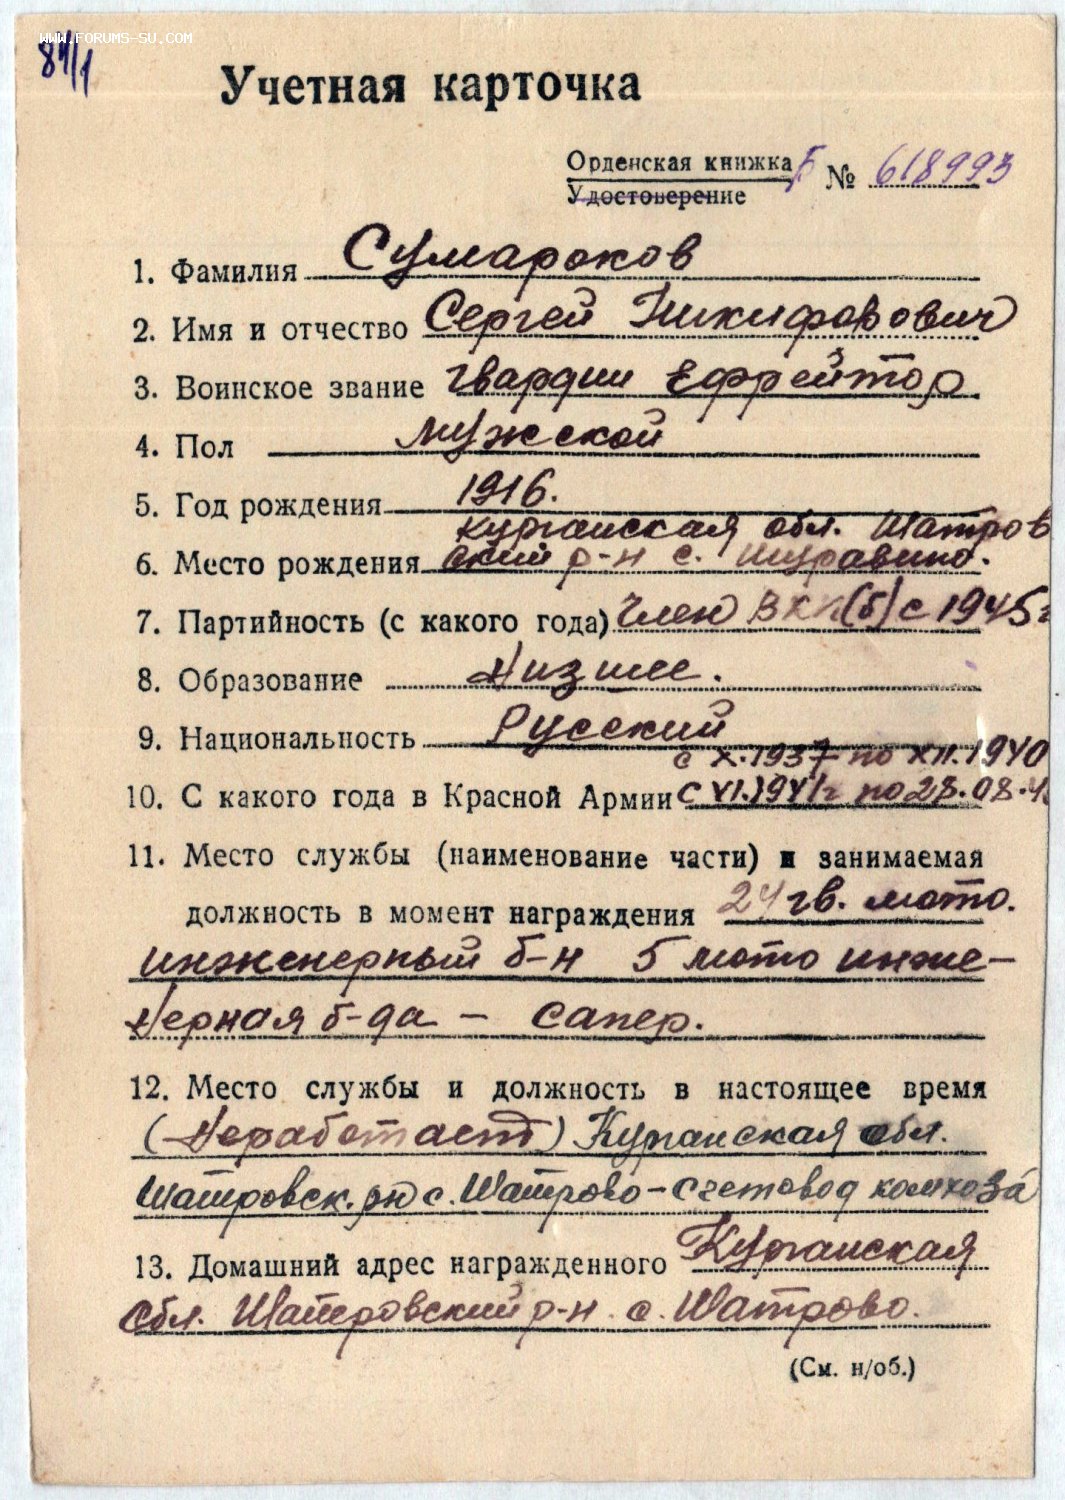 WWW.FORUMS-SU.COM
84/1
Учетная карточка
Орденская книжка Б № 618993
Удостоверение
1. Фамилия Сумароков
2. Имя и отчество Сергей Никифорович
3. Воинское звание гвардии ефрейтор
4. Пол мужской
5. Год рождения 1916.
Курганская обл. Шатров
6. Место рождения ский р-н с.
7. Партийность (с какого года) Член ВКП(б) с 1945г
8. Образование Низшее.
9. Национальность Русский
с X.1937 по XII.1940
10. С какого года в Красной Армии с VI.1941г по 28.08.4
11. Место службы (наименование части) и занимаемая
должность в момент награждения 24 гв. мото.
инженерный б-н 5 мото инже-
нерная б-да - сапер.
12. Место службы и должность в настоящее время
(Неработает) Курганская обл.
Шатровск. рн с. Шатрово - счетовод колхоза
13. Домашний адрес награжденного Курганская
обл. Шатровский р-н. с. Шатрово.
(См. н/об.)